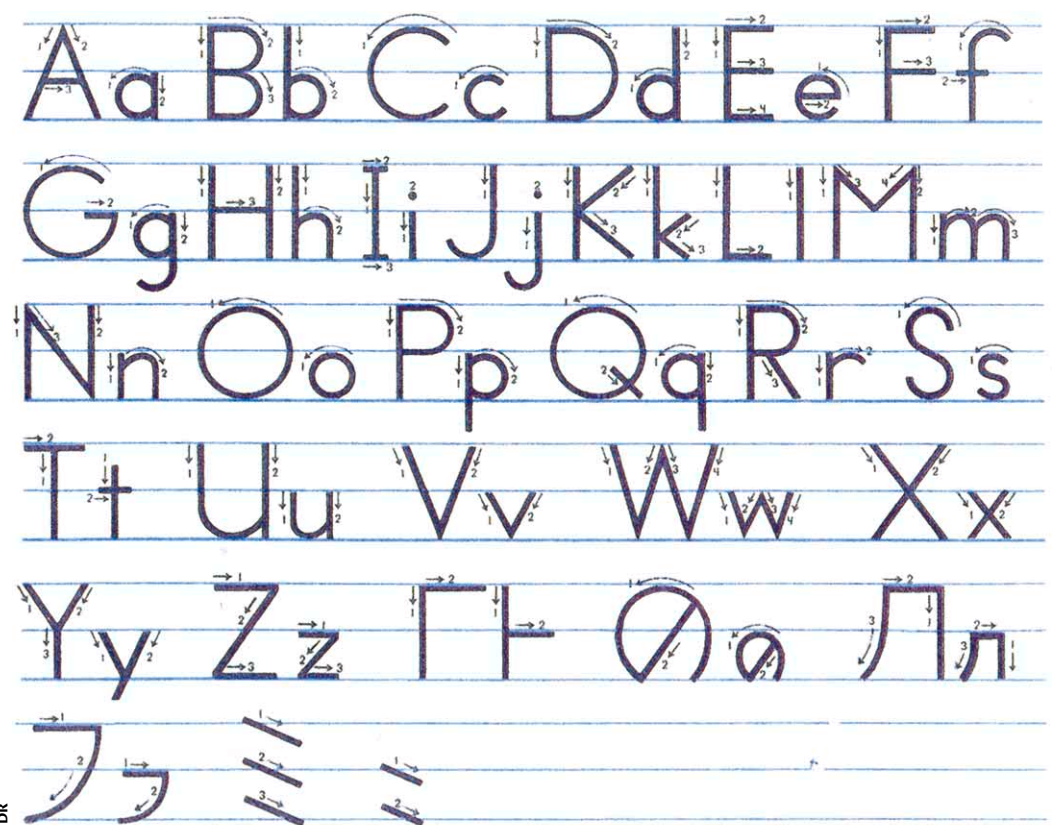 Aa Bb Cc Dd Ee Ff
Gg Hh Ii Jj Kk Ll Mm
Nn Oo Pp Qq Rr Ss
Tt Uu Vv Ww Xx
Yy Zz Г Лл
フフ ミ
DR